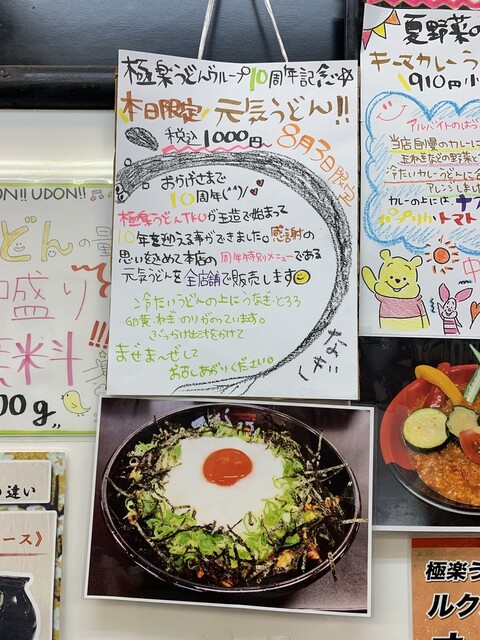 極楽うどんグループ10周年記念
本日限定 元気うどん!!
税込1000円
8月3日限定
おかげさまで
10周年(^^)/
極楽うどんTKUが玉造で始まって
10年を迎える事ができました。感謝の
思いを込めて本店の周年特別メニューである
元気うどんを全店舗で販売します
冷たいうどんの上にうなぎ・とろろ
卵黄・ねぎ・のりがのっています。
ぶっかけ出汁をかけて
まぜま〜ぜして
お召しあがりください。
夏野菜の
キーマカレーう
910円
アルバイトのはっ
当店自慢のカレーに
玉ねぎなどの野菜と
冷たいカレーうどんに合
アレンジしまし
カレーの上には、ナス
パプリカ トマト
ON!! UDON!!
どんの量
中盛り
無料
00g
の違い
ース》
極楽う
ルク